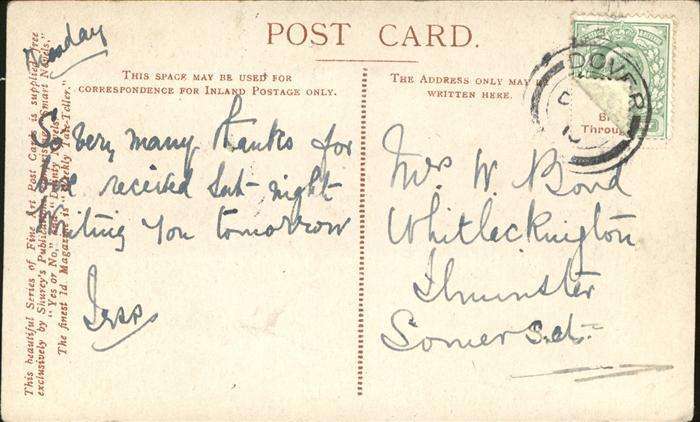 POST CARD.
Tuesday
THIS SPACE MAY BE USED FOR
CORRESPONDENCE FOR INLAND POSTAGE ONLY.
THE ADDRESS ONLY MAY BE
WRITTEN HERE.
DOVER
Throu
Very many thanks for
received last night
Writing you tomorrow
Mrs W. Bond
Whitlackington
Ilminster
Somerset
This beautiful Series of Fine Art Post Cards is supplied free
exclusively by Shurey's Publications
"Yes or No,"
The finest 1d Magazine is "Weekly Tale-Teller."
Smart Novels,"